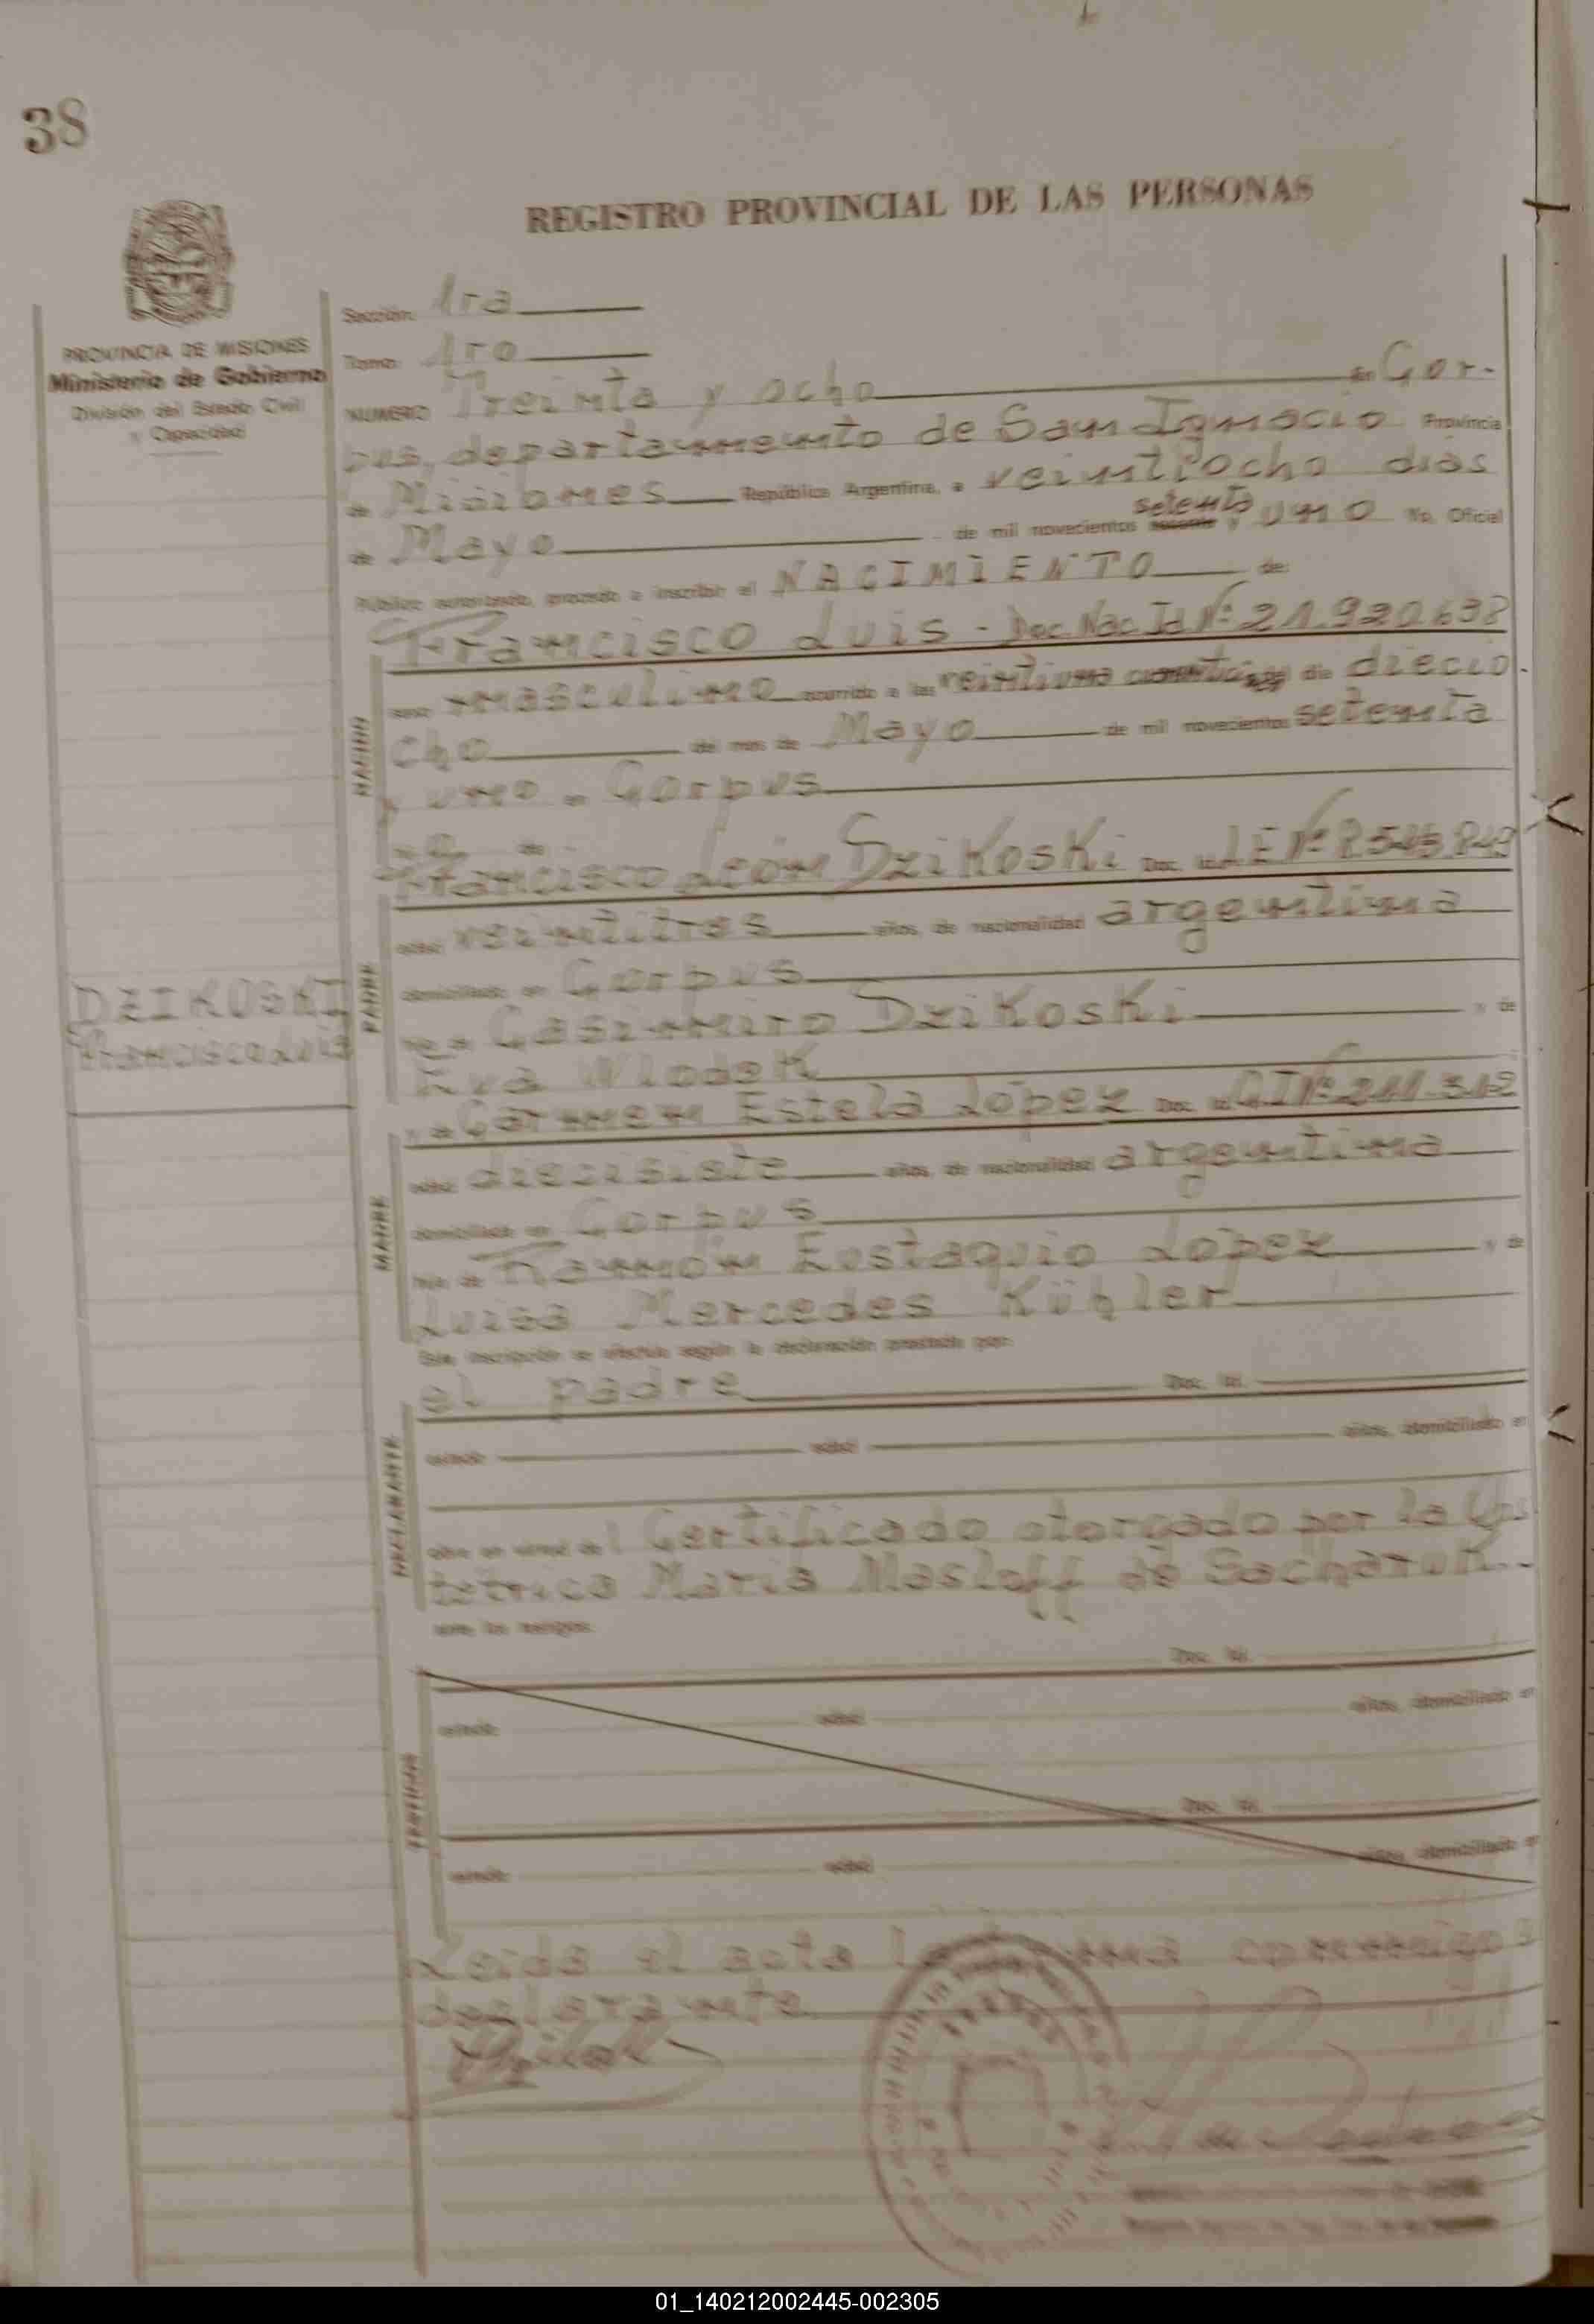 38
REGISTRO PROVINCIAL DE LAS PERSONAS
PROVINCIA DE MISIONES
Ministerio de Gobierno
División del Estado Civil
y Capacidad
Sección: 1ra
Tomo: 1ro
NUMERO Treinta y ocho en Cor-
pus, departamento de San Ignacio Provincia
de Misiones República Argentina, a veintiocho días
de Mayo de mil novecientos sesenta setenta y uno Yo, Oficial
Público autorizado, procedo a inscribir el NACIMIENTO de:
Francisco Luis - Doc. Nac. Id Nº 21.920.638
NACIDO
sexo masculino ocurrido a las veintiuna día diecio-
cho del mes de Mayo de mil novecientos setenta
y uno en Corpus
Francisco León Dzikoski Doc. Id. LE Nº 8.545.849
PADRE
edad veintitres años, de nacionalidad argentina
domiciliado en Corpus
hijo de Casimiro Dzikoski y de
Eva Wlodek
DZIKOSKI
Francisco Luis
y de Carmen Estela López Doc. Id. CI Nº 211.312
MADRE
edad diecisiete años, de nacionalidad argentina
domiciliada en Corpus
hija de Ramón Eustaquio López y de
Luisa Mercedes Kühler
Esta inscripción se efectúa según la declaración prestada por:
el padre Doc. Id.
DECLARANTE
estado edad años, domiciliado en
obra en virtud del Certificado otorgado por la Obs
tetrica María Masloff de Sacharuk.-
ante los testigos:
TESTIGOS
Doc. Id.
estado edad años, domiciliado en
Doc. Id.
estado edad años, domiciliado en
Leida el acta la firma conmigo el
declarante
01_140212002445-002305